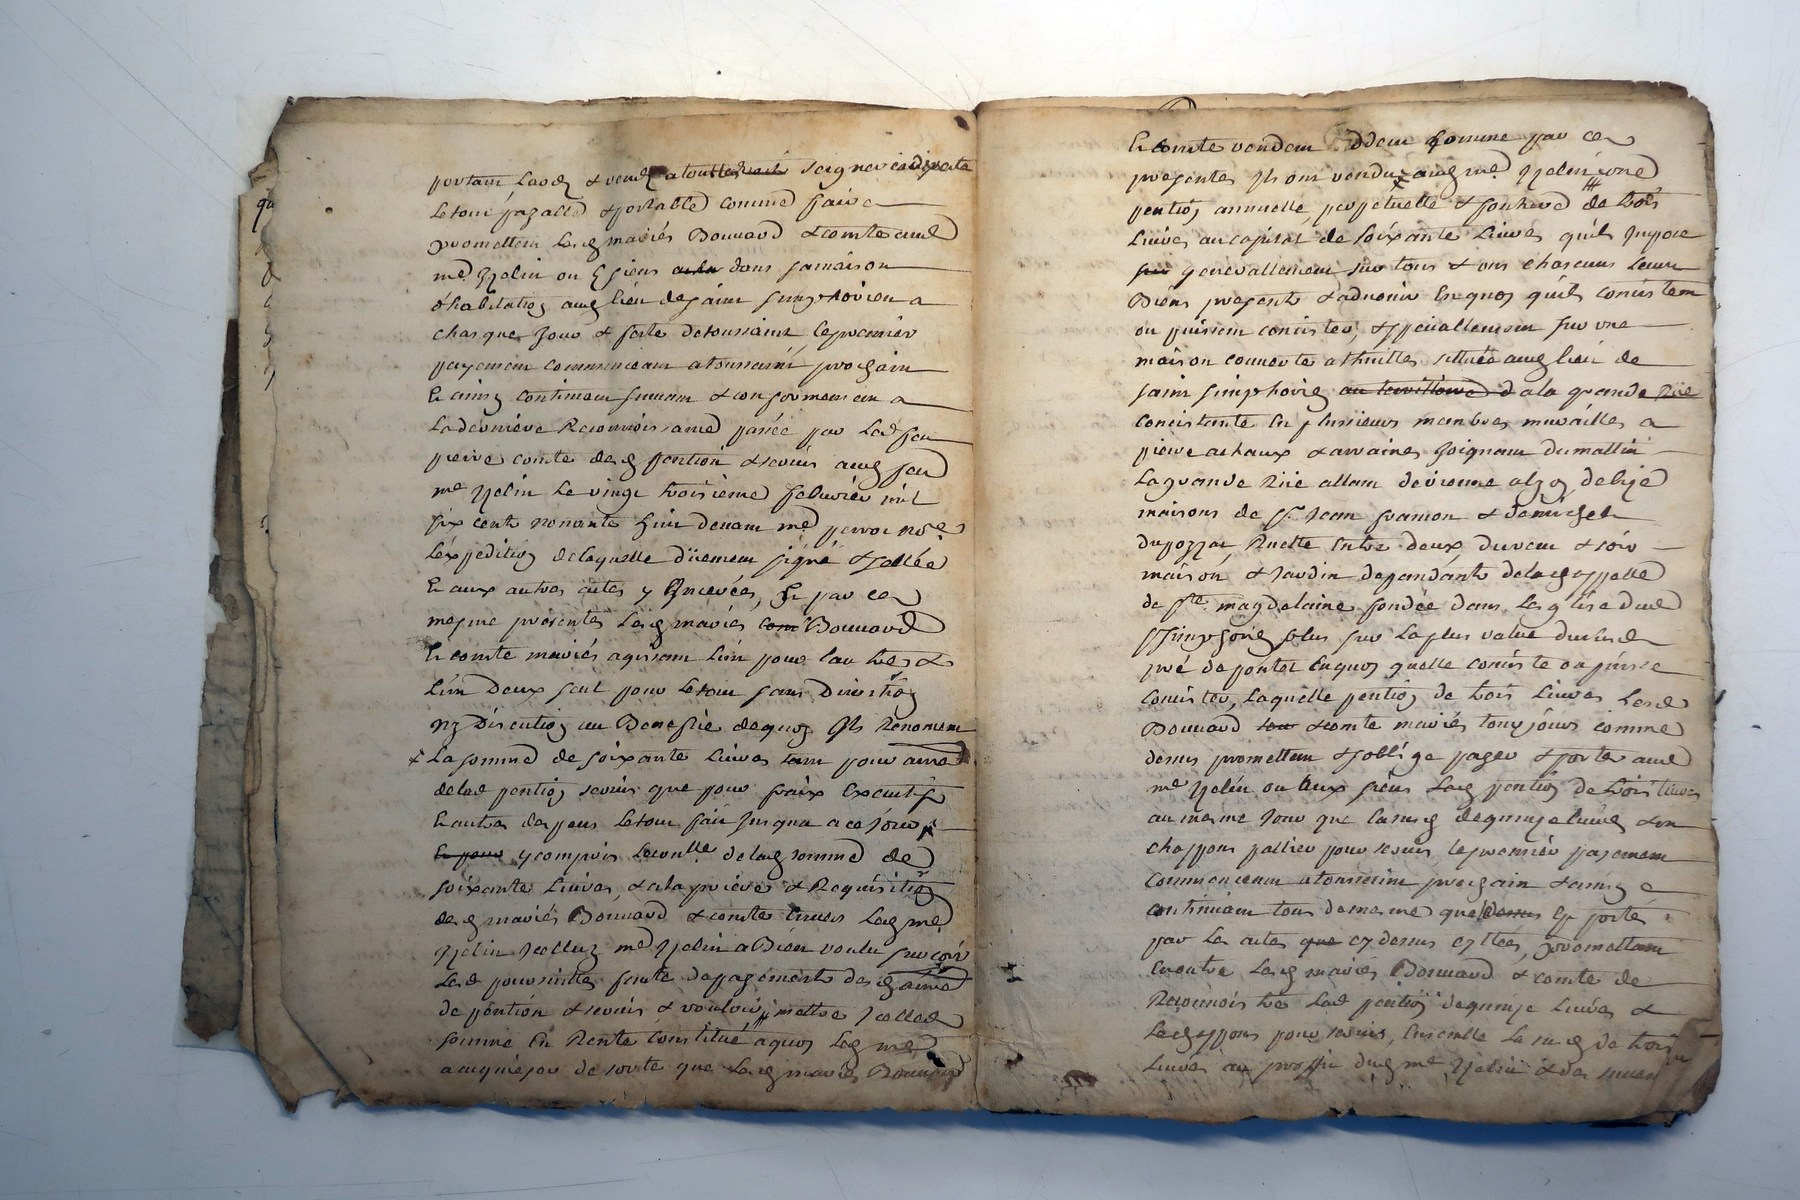 portant laods & vends a tous seigneur indirecte
le tout payable & portable comme faire
promettent lesd mariés Bonnard & comte aud
me yzelin ou es siens dans sa maison
d'habitation aud lieu de saint simphorien a
chasque jour & feste de toussaint, le premier
payement commenceant a toussaint prochain
et ainsy continieront suivant & conformement a
la derniere reconnoissance passée par led feu
pierre comte desd pention & servis aud feu
me yzelin le vingt troisieme febvrier mil
six cent nonante huit devant me perroi nore
l'expedition de laquelle düement signé & sellée
et aux autres actes y enoncés, et par ces
mesme presentes lesd mariés com Bonnard
et comte mariés agissant l'un pour l'autre &
l'un deux seul pour le tout sans division
ny discution au benefice dequoy ils renoncent
x la somme de soixante livres tant pour
de lad pention servis que pour fraix executifs
et autres depens le tout fait jusqua a ce jour
et pour y compris le conlle de lad somme de
soixante livres, & a la priere & requisition
desd mariés Bonnard & comte envers led me
yzelin icelluy me yzelin a bien voulu surceoir
les poursuittes faute de payements desd
de pention & servis & vouloir mettre icelle
somme en rente constitué a quoy led me
acquiesce de sorte que lesd mariés Bonnard
et comte vendent comme par ces
presentes ils ont vendu aud me yzelin une
pention annuelle, perpetuelle & fonciere de trois
livres au capital de soixante livres qu'ils impose
sur generallement sur tous & uns chascuns leurs
biens presents & advenir en quoy qu'ils concistent
ou puissent concister, & speciallement sur une
maison couverte a thuilles sittuée aud lieu de
saint simphorien a la grande rüe
concistante en plusieurs membres murailles a
pierre a chaux & arraines joignant du mattin
la grande rüe allant de vienne a lyon, de bize
maisons de sr jean framon &
ruette entre deux, du vent & soir
maison & jardin dependants de la chappelle
de ste magdelaine fondée dans l'eglise dud
st simphorien plus sur la plus value dud
pré de pontet en quoy quelle conciste ou puisse
concister, laquelle pention de trois livres lesd
Bonnard & comte mariés toujours comme
dessus promettent & s'oblige payer & porter aud
me yzelin ou aux siens lad pention de trois livres
au mesme jour que la susd de quinze livres & un
chappons pallier pour servis, le premier payement
commenceant a toussaint prochain & ainsy
continieront tout de mesme que dessus est porté
par les actes que cy dessus cyttés, promettant
en outre lesd mariés Bonnard & comte de
reconnoistre lad pention de quinze livres &
led chappons pour servis, ensemble la susd de trois
livres au proffit dud me yzelin & des siens